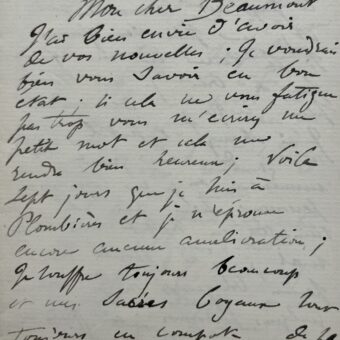 Mon cher Beaumont
J'ai bien envie d'avoir
de vos nouvelles ; je voudrais
bien vous savoir en bon
etat ; si cela ne vous fatigue
pas trop vous m'ecrirez un
petit mot et cela me
rendra bien heureux ; Voila
sept jours que je suis à
Plombières et je n'éprouve
encore aucune amelioration ;
je souffre toujours beaucoup
et mes sacrés boyaux sont
toujours en compote de la